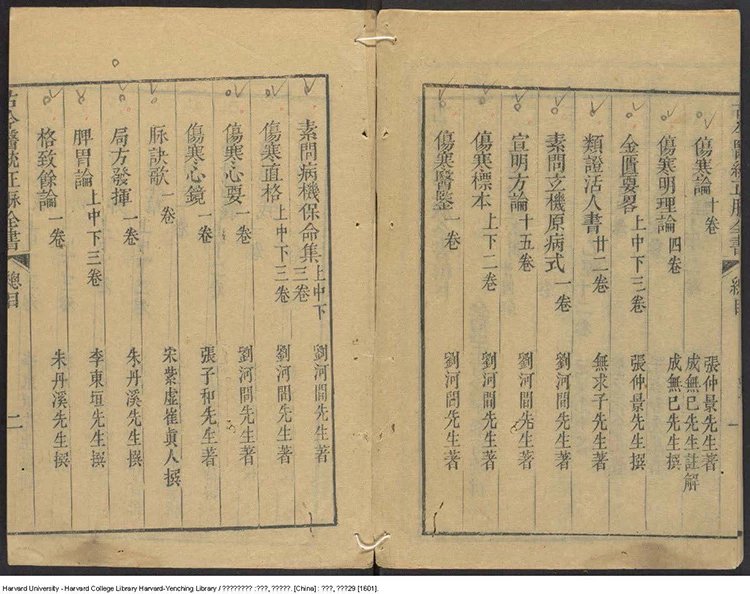 古今醫統正脉全書 總目 一
傷寒論 十卷 張仲景先生著 成無已先生註解
傷寒明理論 四卷 成無已先生撰
金匱要畧 上中下三卷 張仲景先生撰
類證活人書 廿二卷 無求子先生著
素問玄機原病式 一卷 劉河間先生著
宣明方論 十五卷 劉河間先生著
傷寒標本 上下二卷 劉河間先生著
傷寒醫鑒 一卷 劉河間先生著
素問病機保命集 上中下三卷 劉河間先生著
傷寒直格 上中下三卷 劉河間先生著
傷寒心要 一卷 劉河間先生著
傷寒心鏡 一卷 張子和先生著
脉訣歌 一卷 宋紫虛崔眞人撰
局方發揮 一卷 朱丹溪先生撰
脾胃論 上中下三卷 李東垣先生撰
格致餘論 一卷 朱丹溪先生撰
古今醫統正脉全書 總目 二
Harvard University - Harvard College Library Harvard-Yenching Library / ???????? :???, ?????. [China] : ???, ???29 [1601].